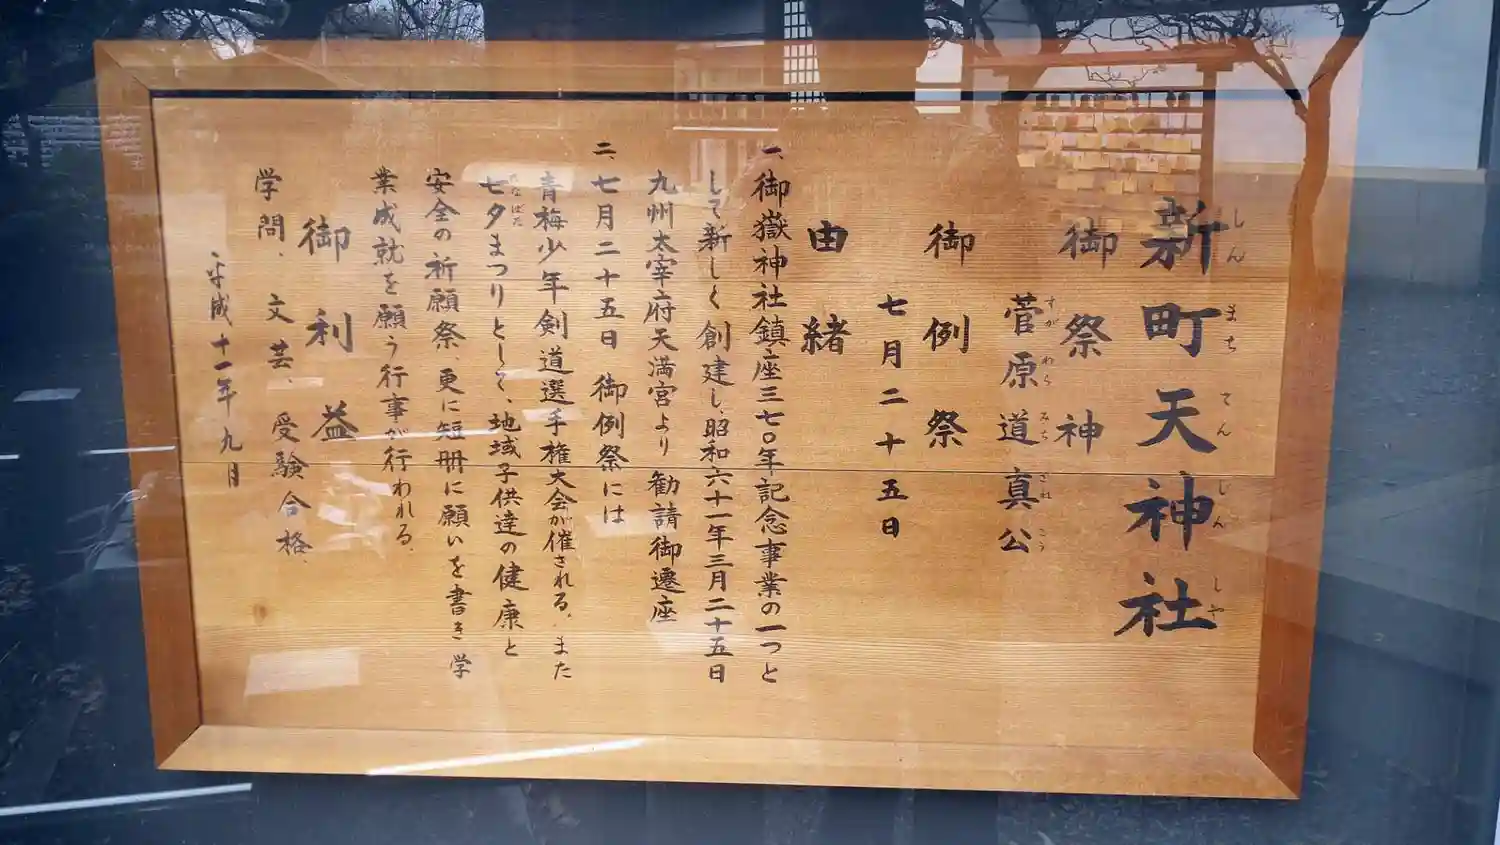 新町天神社
しんまちてんじんしや
御祭神
菅原道真公
すがわらみちざねこう
御例祭
七月二十五日
由緒
一、御嶽神社鎮座三七〇年記念事業の一つと
して新しく創建し、昭和六十一年三月二十五日
九州太宰府天満宮より勧請御遷座
二、七月二十五日御例祭には
青梅少年剣道選手権大会が催される。また
七夕まつりとして、地域子供達の健康と
たなばた
安全の祈願祭、更に短冊に願いを書き学
業成就を願う行事が行われる。
御利益
学問、文芸、受験合格、
平成十一年九月